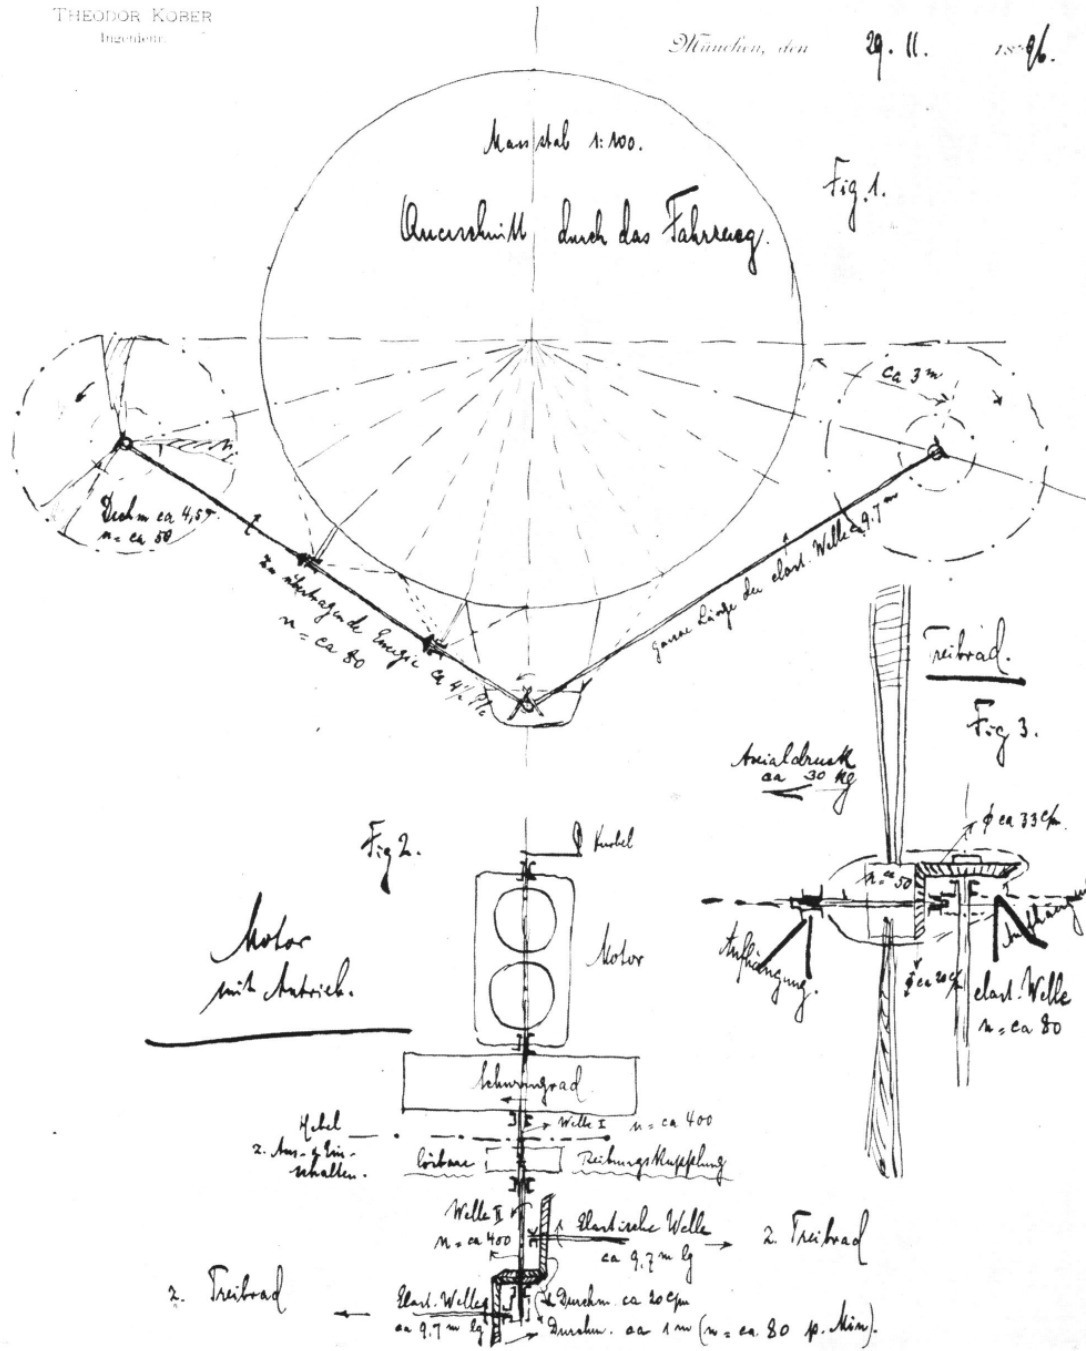 THEODOR KOBER
Ingenieur.
München, den 29. 11. 1896.
Massstab 1:100.
Fig. 1.
Querschnitt durch das Fahrzeug.
ca 3 m
Dchm ca 4,5 m.
n = ca 50
Zu übertragende Energie ca 4½
n = ca 80
ganze Länge der elast. Welle ca 9.7 m
Treibrad.
Fig 3.
Axialdruck
ca 30 kg
ϕ ca 33 c/m.
n = ca 50
Aufhängung.
Aufhängung
ϕ ca 20 c/m
elast. Welle
n = ca 80
Fig 2.
Kurbel
Motor
mit Antrieb.
Motor
Schwungrad
Hebel
z. Aus- & Ein-
schalten.
Welle I n = ca 400
lösbare Reibungskupplung
Welle II
n = ca 400
Elastische Welle
ca 9,7 m lg
z. Treibrad
z. Treibrad
Elast. Welle
ca 9.7 m lg
Durchm. ca 20 c/m
Durchm. ca 1 m (n = ca. 80 p. Min).